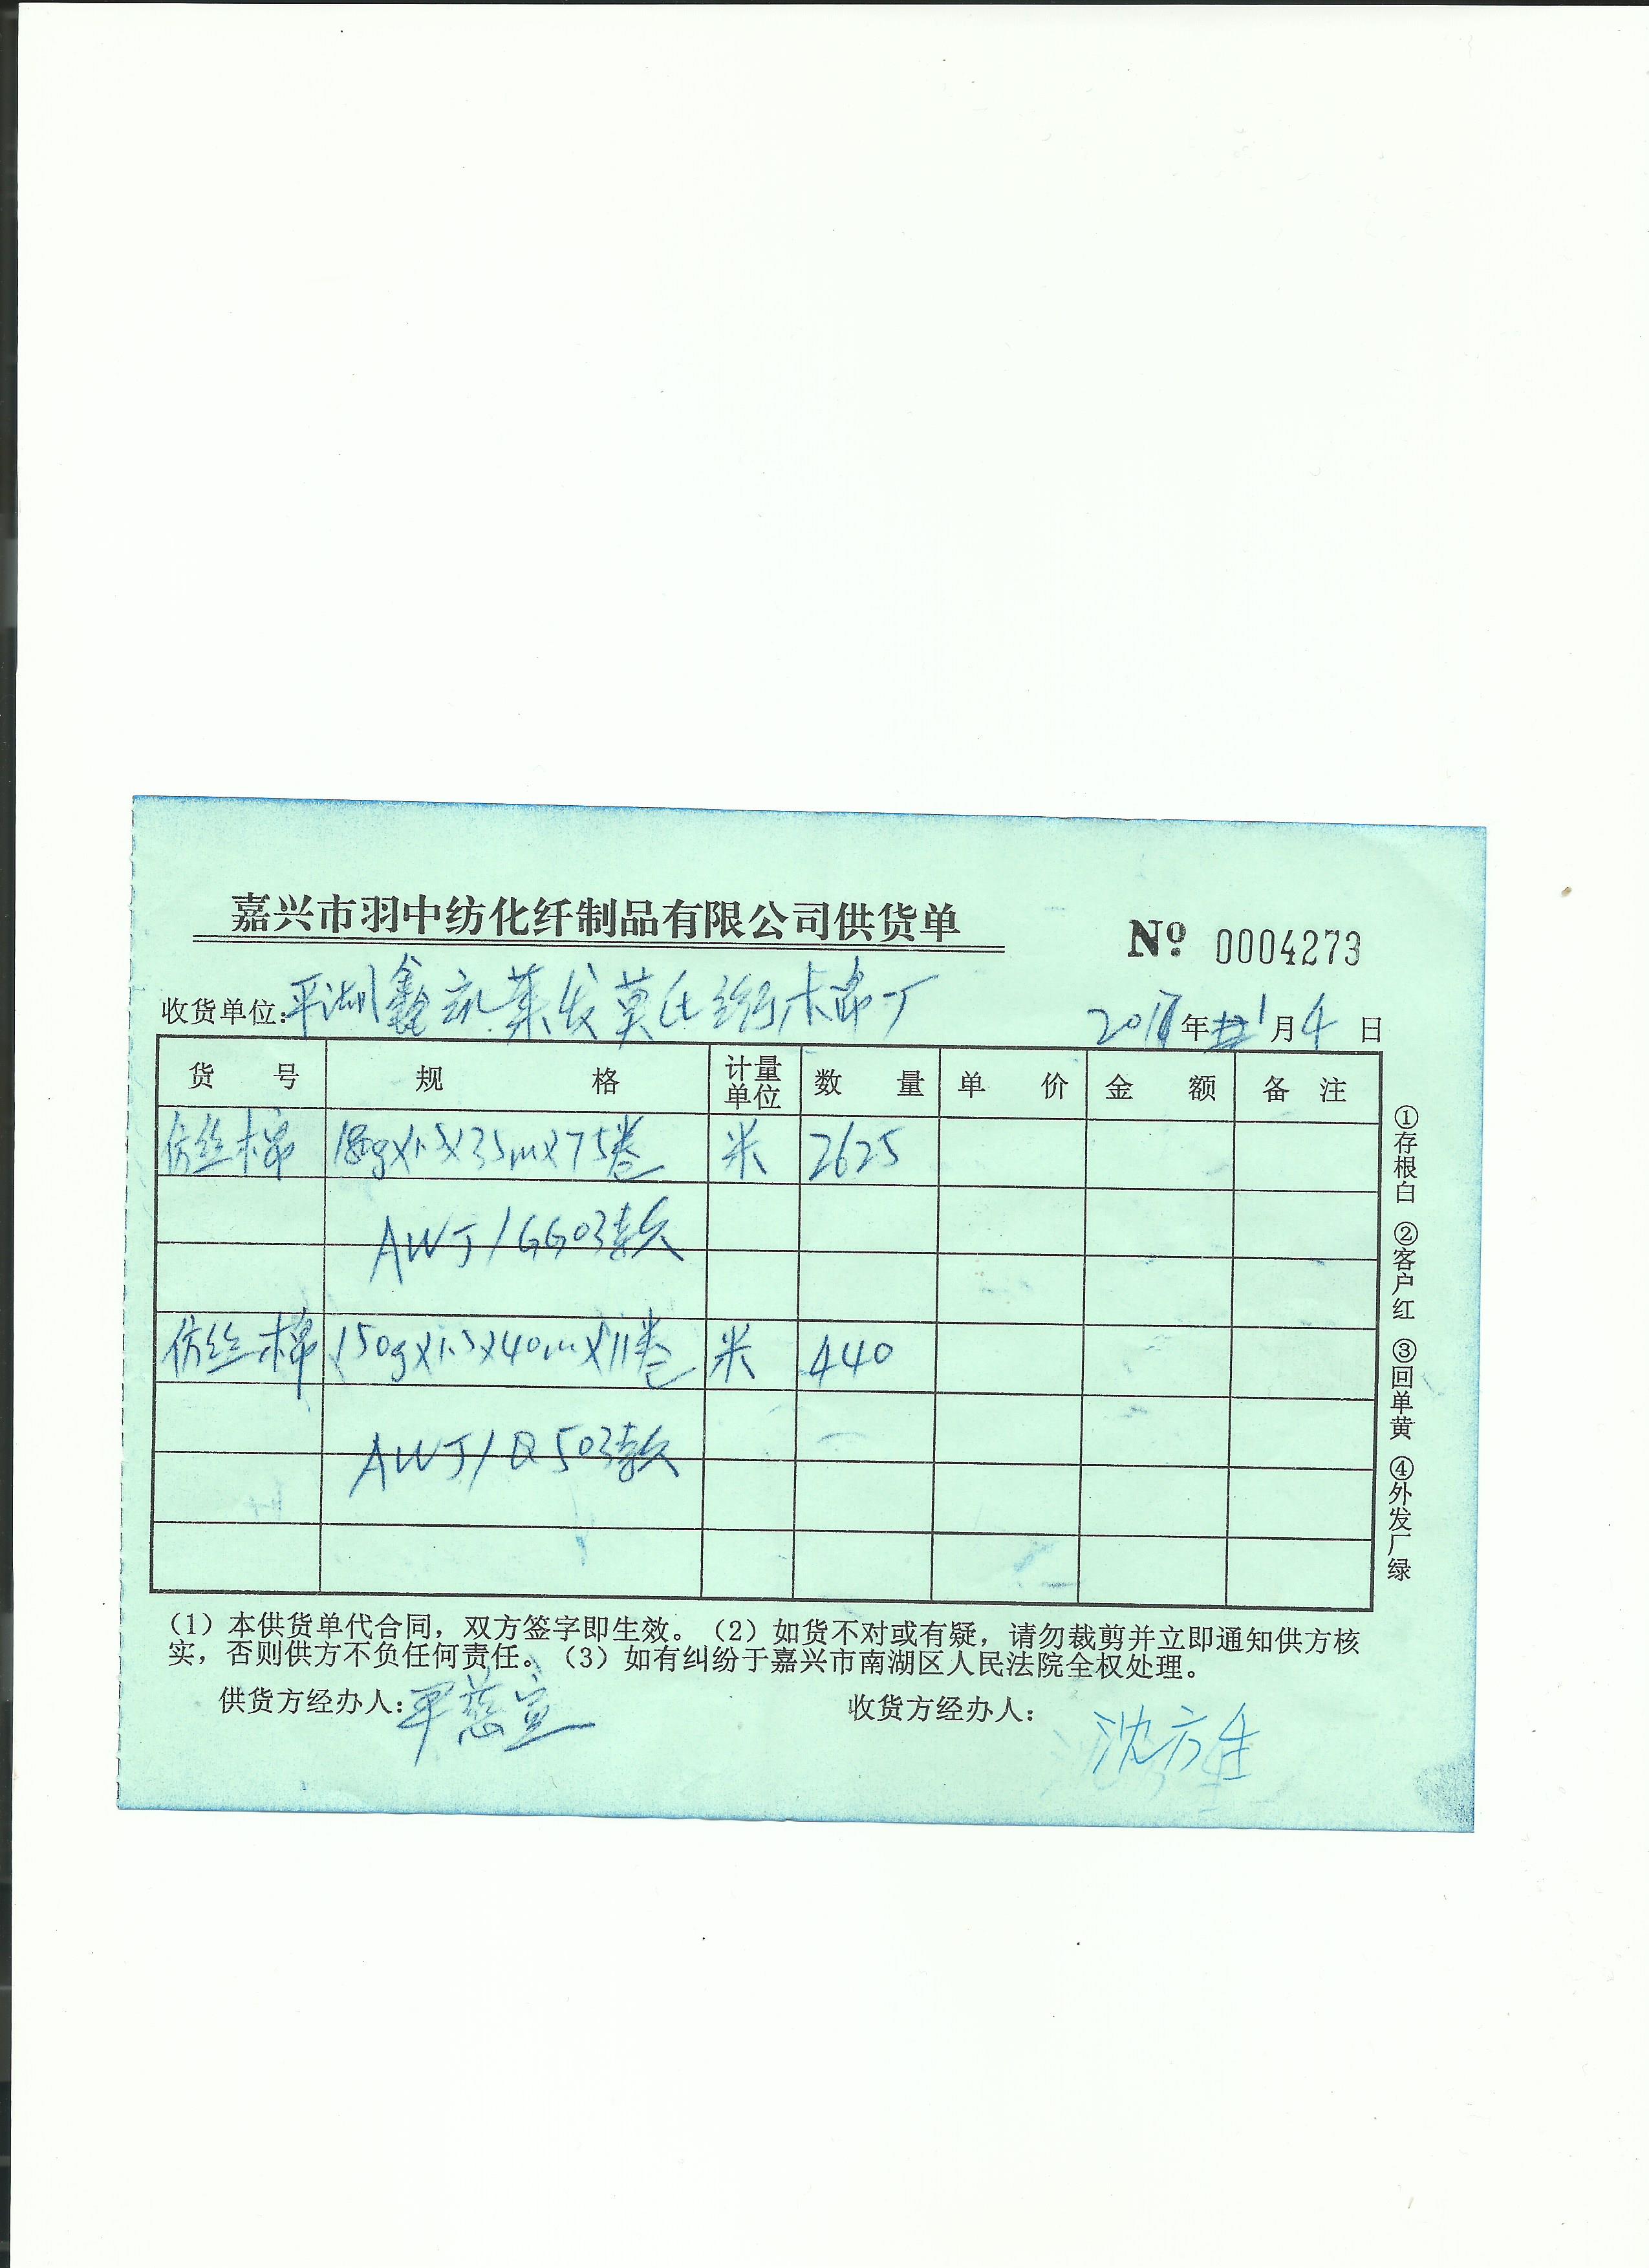 嘉兴市羽中纺化纤制品有限公司供货单
№ 0004273
收货单位:平湖鑫 莱发莫氏 棉厂
201 年 1月4日
货号 规格 计量单位 数量 单价 金额 备注
仿丝棉 180g×1.5×35m×75卷 米 2625
AWJ/GG03款
仿丝棉 150g×1.5×40m×11卷 米 440
AWJ/Q503款
①存根白 ②客户红 ③回单黄 ④外发厂绿
(1)本供货单代合同,双方签字即生效。(2)如货不对或有疑,请勿裁剪并立即通知供方核
实,否则供方不负任何责任。(3)如有纠纷于嘉兴市南湖区人民法院全权处理。
供货方经办人: 平慈宣 收货方经办人: 沈方